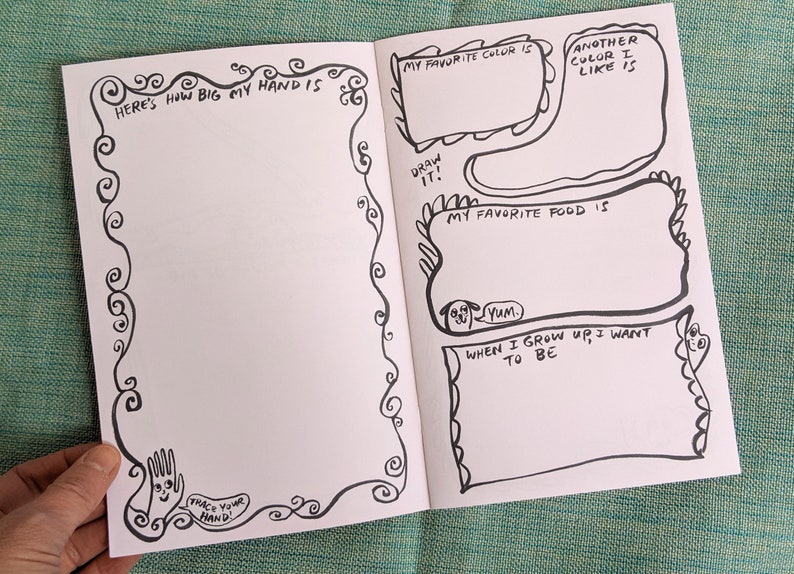 HERE'S HOW BIG MY HAND IS
TRACE YOUR
HAND!
MY FAVORITE COLOR IS
ANOTHER
COLOR I
LIKE IS
DRAW
IT!
MY FAVORITE FOOD IS
YUM.
WHEN I GROW UP, I WANT
TO BE